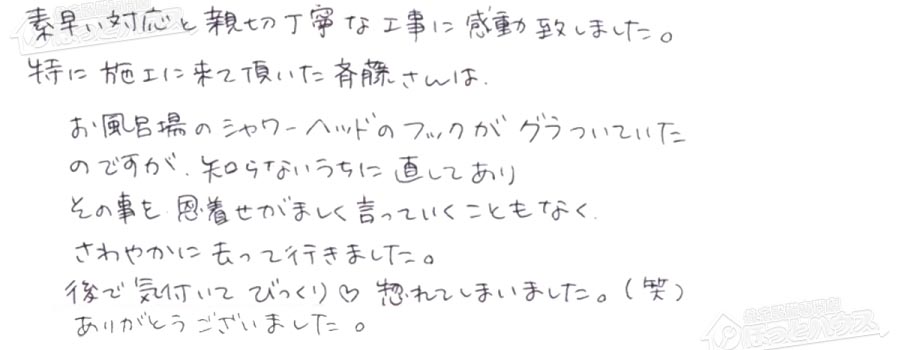 素早い対応と親切丁寧な工事に感動致しました。
特に施工に来て頂いた斉藤さんは、
お風呂場のシャワーヘッドのフックがグラついていた
のですが、知らないうちに直してあり
その事を恩着せがましく言っていくこともなく、
さわやかに去って行きました。
後で気付いてびっくり♡惚れてしまいました。(笑)
ありがとうございました。
ほっとハウス